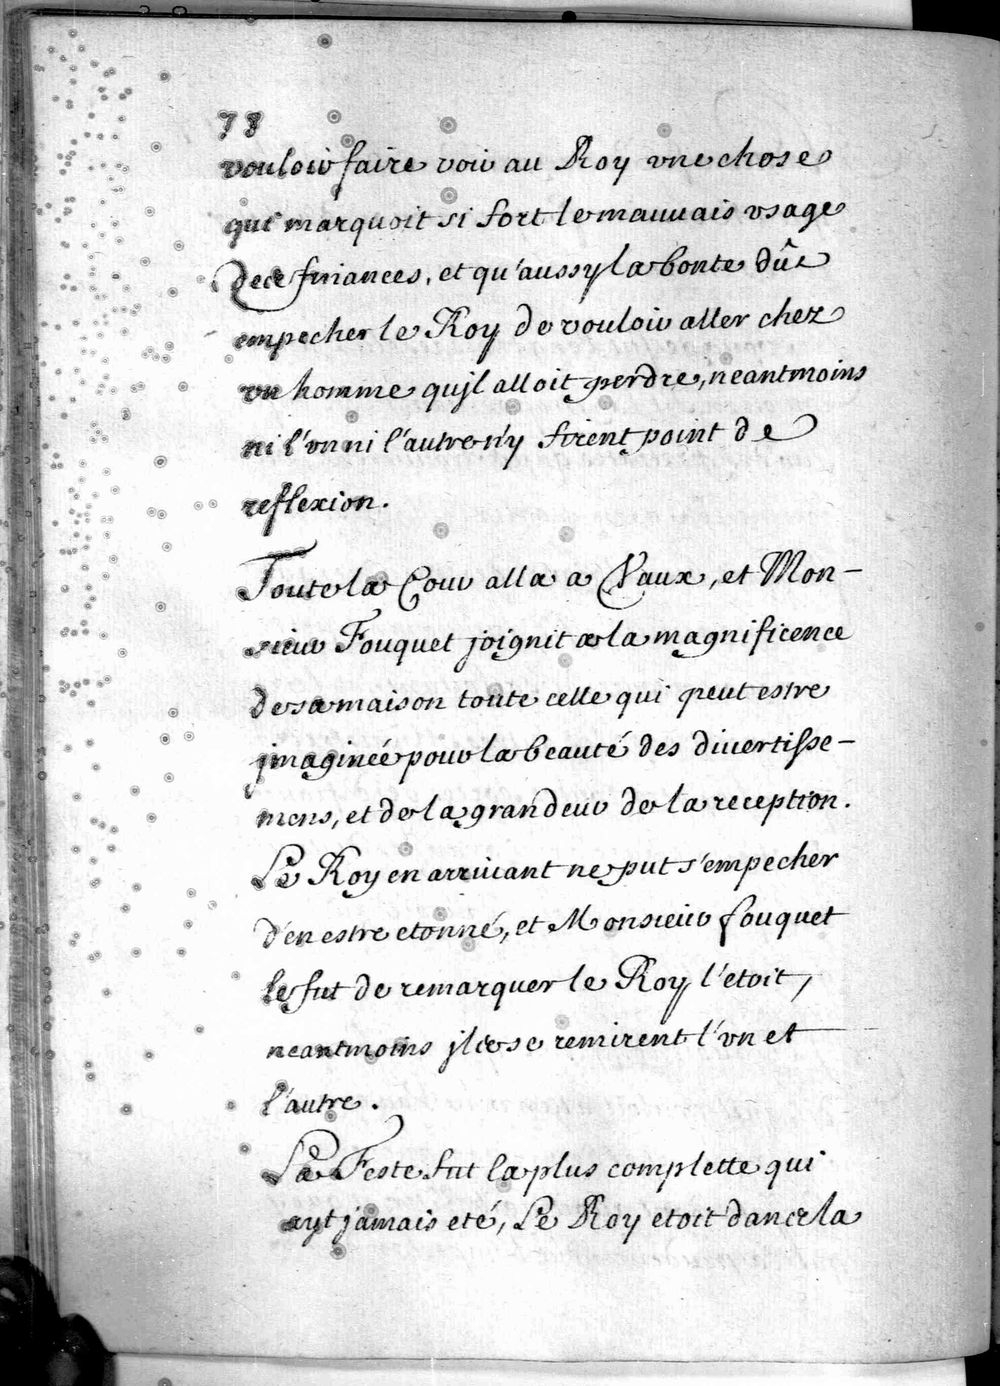 78
vouloir faire voir au Roy vne chose
qui marquoit si fort le mauuais vsage
de ce finances, et qu'aussy la bonte dûe
empecher le Roy de vouloir aller chez
vn homme qu'jl alloit perdre, neantmoins
ni l'vn ni l'autre n'y firent point de
reflexion.
Toute la Cour alla a Vaux, et Mon-
sieur Fouquet joignit a la magnificence
de sa maison toute celle qui peut estre
jmaginée pour la beauté des diuertisse-
mens, et de la grandeur de la reception.
Le Roy en arriuant ne put s'empecher
d'en estre etonné, et Monsieur fouquet
le fut de remarquer le Roy l'etoit,
neantmoins jls se remirent l'vn et
l'autre.
La Feste fut la plus complette qui
ayt jamais eté, Le Roy etoit dans la